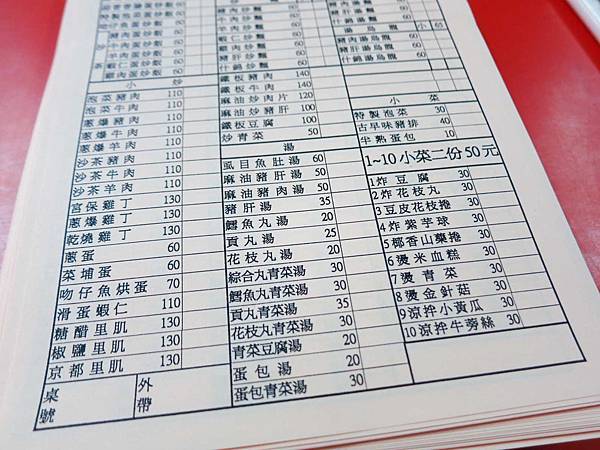 小 炒
泡菜豬肉 110
泡菜牛肉 110
蔥爆豬肉 110
蔥爆牛肉 110
蔥爆羊肉 110
沙茶豬肉 110
沙茶牛肉 110
沙茶羊肉 110
宮保雞丁 110
蔥爆雞丁 110
乾燒雞丁 110
蔥蛋 60
菜埔蛋 60
吻仔魚烘蛋 70
滑蛋蝦仁 110
糖醋里肌 130
椒鹽里肌 130
京都里肌 130
桌號
外帶
鐵板豬肉 140
鐵板牛肉 140
麻油炒肉片 120
麻油炒豬肝 100
鐵板豆腐 100
炒青菜 50
湯
虱目魚肚湯 60
麻油豬肝湯 50
麻油豬肉湯 50
豬肝湯 35
鱈魚丸湯 20
貢丸湯 25
花枝丸湯 20
綜合丸青菜湯 30
鱈魚丸青菜湯 30
貢丸青菜湯 35
花枝丸青菜湯 30
青菜豆腐湯 20
蛋包湯 20
蛋包青菜湯 30
小 菜
特製泡菜 30
古早味豬排 40
半熟蛋包 10
1~10小菜二份50元
1炸豆腐 30
2炸花枝丸 30
3豆皮花枝捲 30
4炸紫芋球 30
5椰香山藥捲 30
6燙米血糕 30
7燙青菜 30
8燙金針菇 30
9涼拌小黃瓜 30
10涼拌牛蒡絲 30